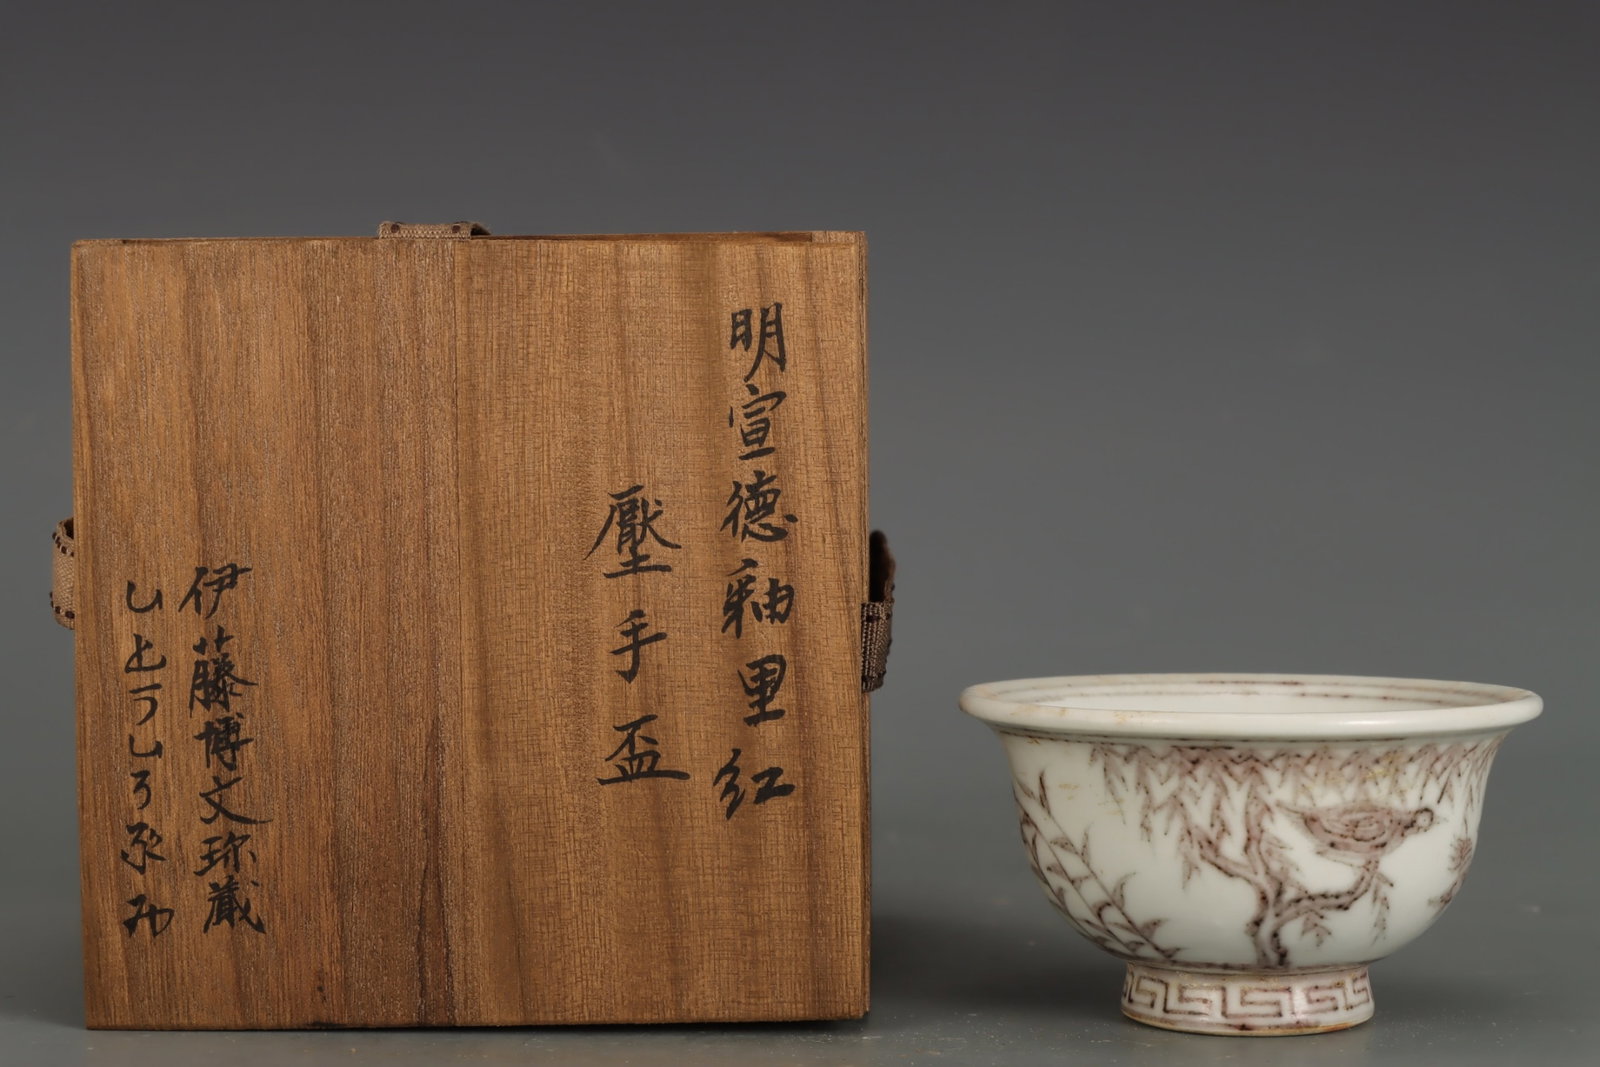 明宣德釉里红
壓手盃
伊藤博文珎藏